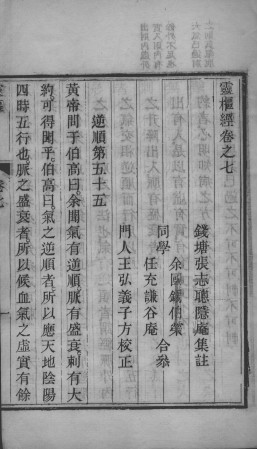 靈樞經卷之七
錢塘張志聰隱庵集註
同學
余國錫伯榮
任充謙谷庵
合叅
門人王弘義子方校正
逆順第五十五
黃帝問于伯高曰余聞氣有逆順脈有盛衰刺有大
約可得聞乎伯高曰氣之逆順者所以應天地陰陽
四時五行也脈之盛衰者所以候血氣之虛實有餘